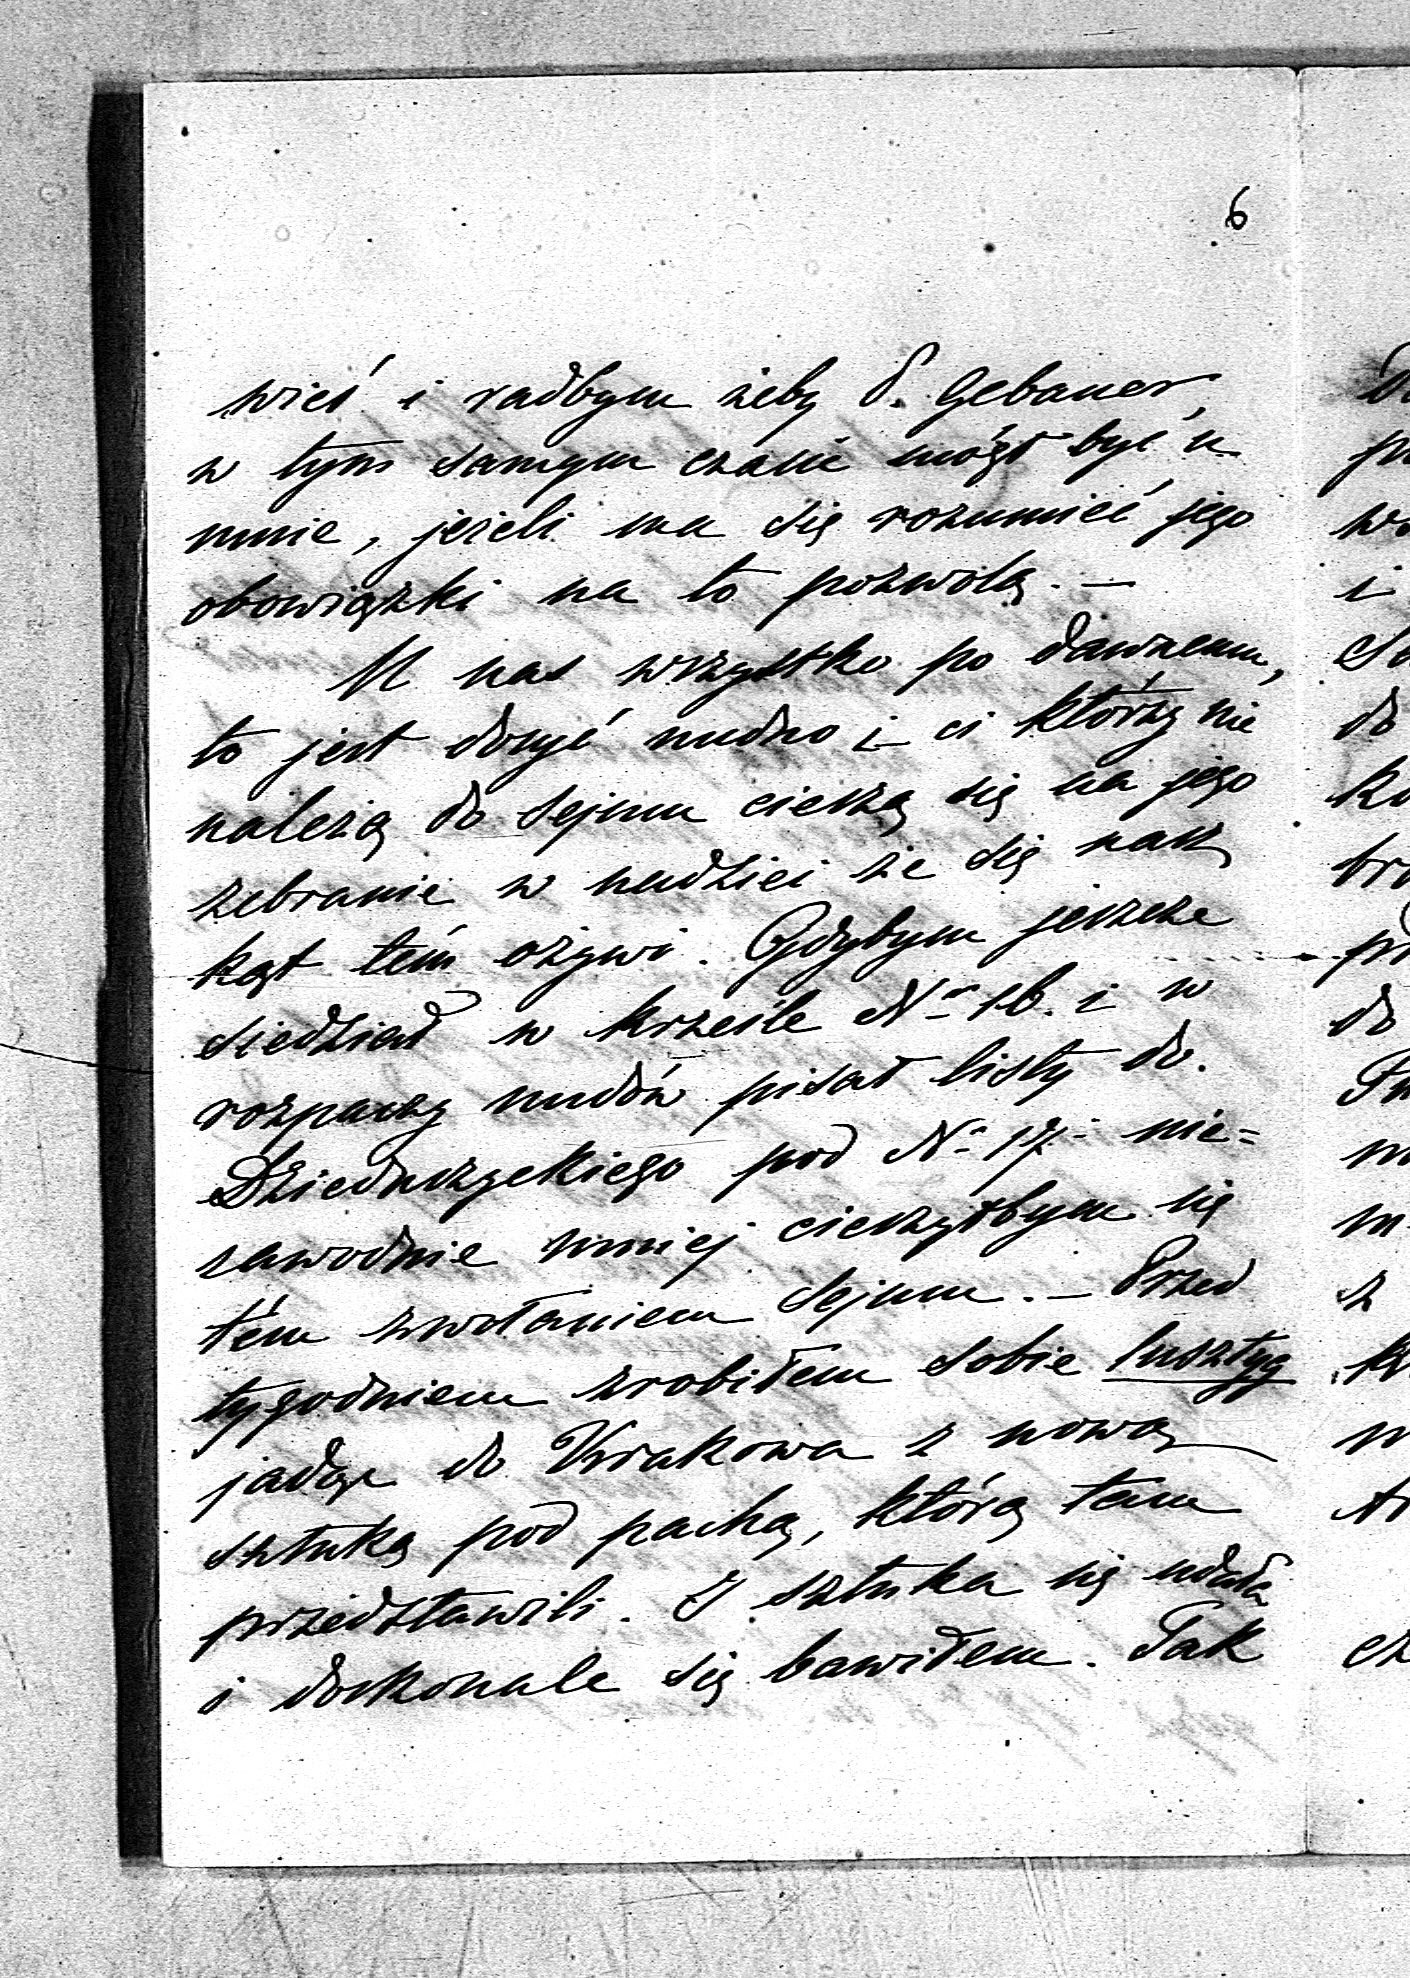 6
wieś i radbym żeby P. Gebauer,
w tym samym czasie mógł być u
mnie, jeżeli ma się rozumieć jego
obowiązki na to pozwolą. —
U nas wszystko po dawnemu,
to jest dosyć nudno i ci którzy nie
należą do sejmu cieszą się na jego
zebranie w nadziei że się nasz
kąt tém ożywi. Gdybym jeszcze
siedział w krześle Nr 16. i w
rozpaczy nudów pisał listy do
Dzieduszyckiego pod Nr 17. nie=
zawodnie mniej cieszyłbym się
tém zwołaniem Sejmu. — Przed
tygodniem zrobiłem sobie lusztyg
jadąc do Krakowa z nową
sztuką pod pachą, którą tam
przedstawili. I sztuka się udała
i doskonale się bawiłem. Tak